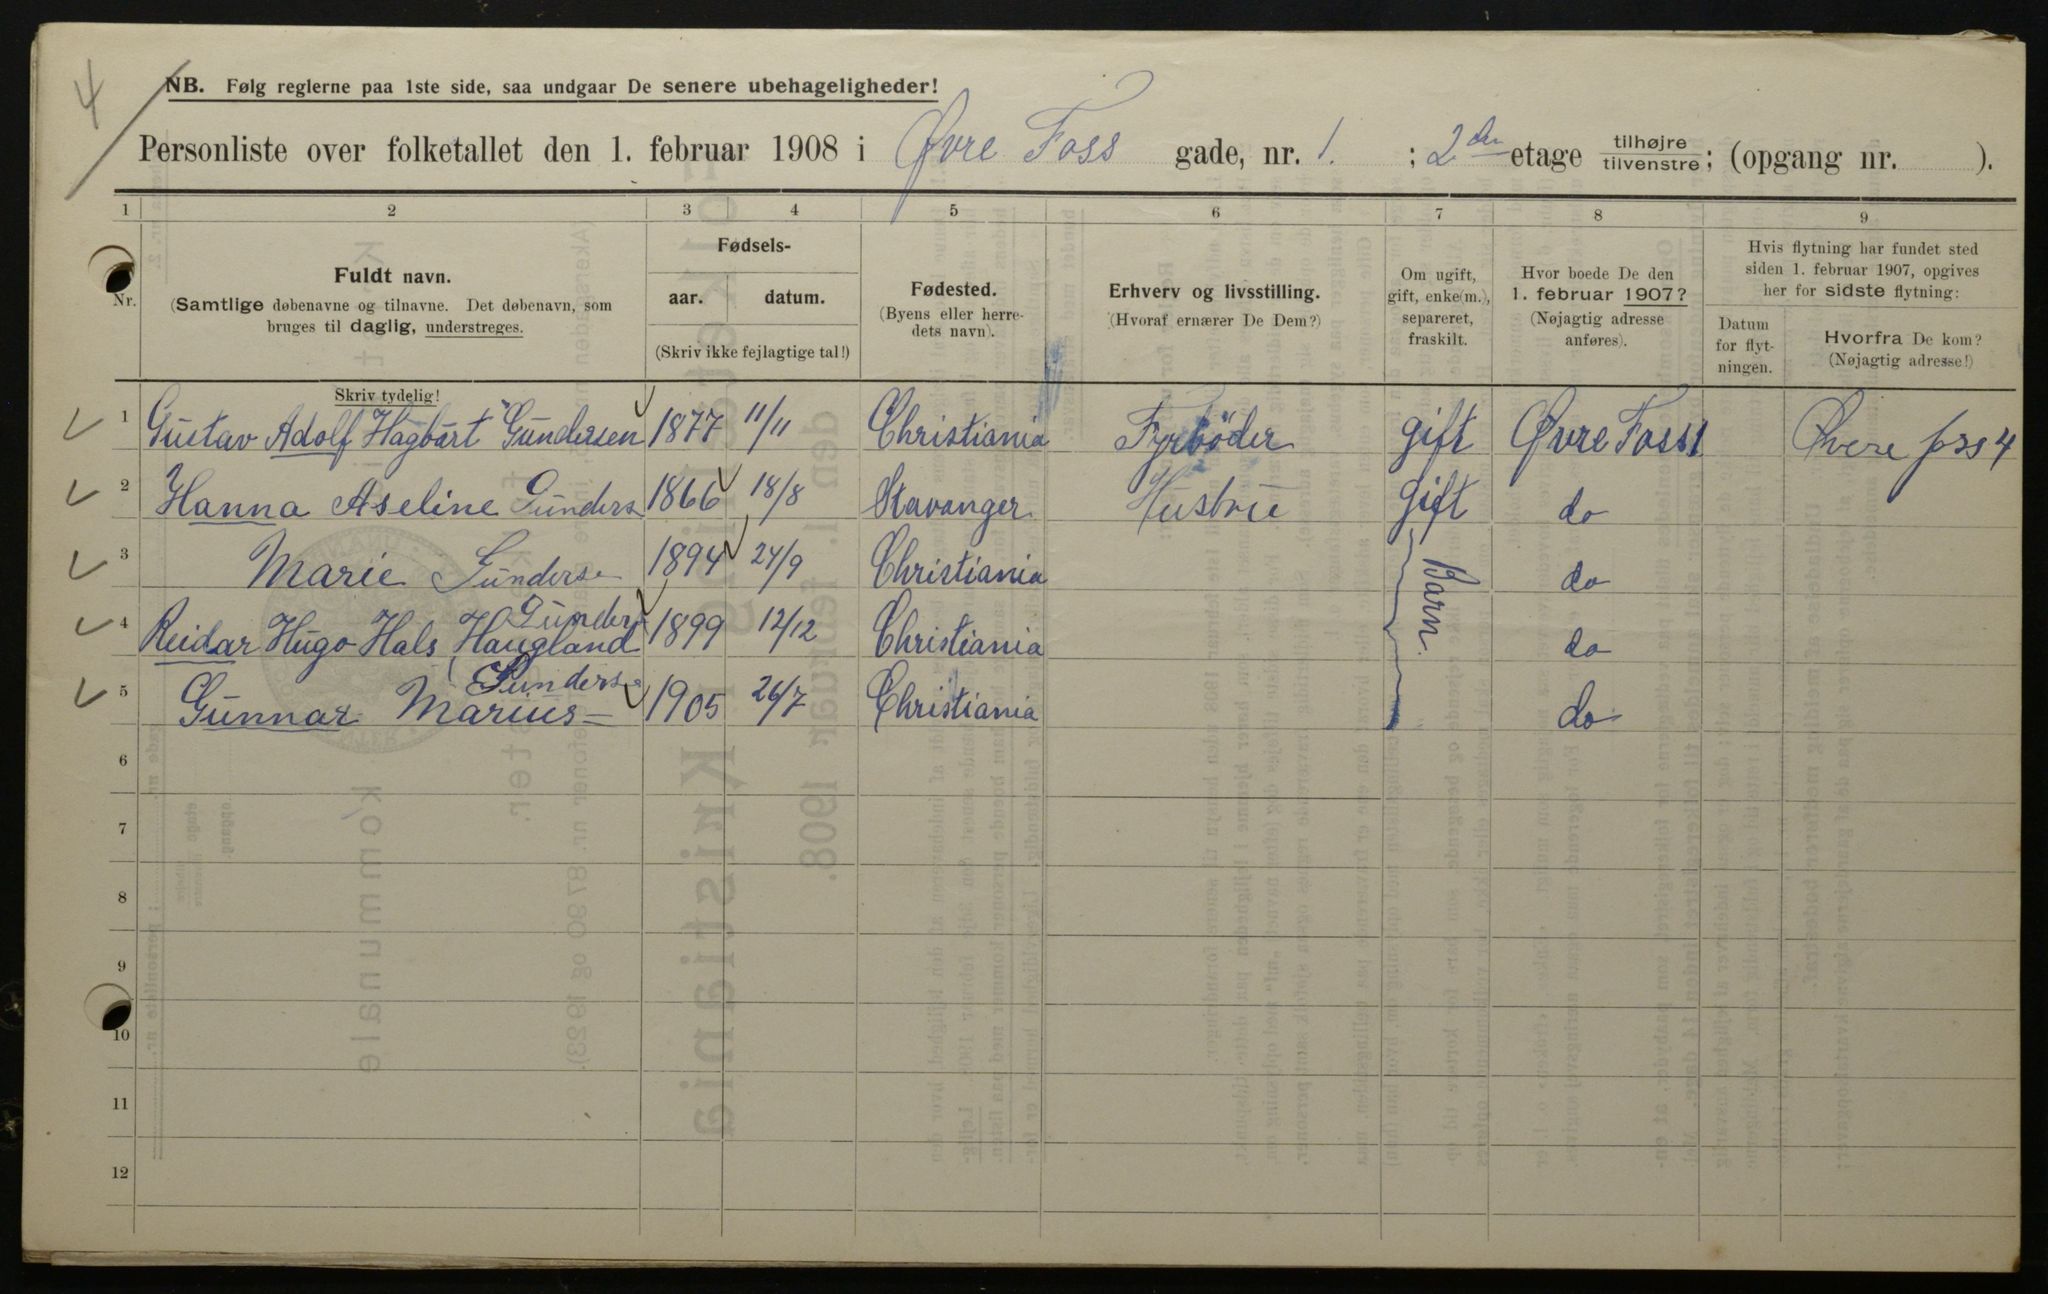 4
NB. Følg reglerne paa 1ste side, saa undgaar De senere ubehageligheder!
Personliste over folketallet den 1. februar 1908 i Øvre Foss gade, nr. 1. ; 2den etage tilhøjre tilvenstre; (opgang nr. ).
1 2 3 4 5 6 7 8 9
Nr.
Fuldt navn.
(Samtlige døbenavne og tilnavne. Det døbenavn, som
bruges til daglig, understreges.
Skriv tydelig!
Fødsels-
aar. datum.
(Skriv ikke fejlagtige tal!)
Fødested.
(Byens eller herre-
dets navn).
Erhverv og livsstilling.
(Hvoraf ernærer De Dem?)
Om ugift,
gift, enke(m.),
separeret,
fraskilt.
Hvor boede De den
1. februar 1907?
(Nøjagtig adresse
anføres).
Hvis flytning har fundet sted
siden 1. februar 1907, opgives
her for sidste flytning:
Datum
for flyt-
ningen.
Hvorfra De kom?
(Nøjagtig adresse!)
1 Gustav Adolf Hagbart Gundersen 1877 11/11 Christiania Fyrbøder gift Øvre Foss 1 Øvere foss 4
2 Hanna Aseline Gunders 1866 18/8 Stavanger Hustru gift do
3 Marie Gunderse 1894 24/9 Christiania Barn. do
Gunder
4 Reidar Hugo Hals Haugland 1899 12/12 Christiania do
Gunders
5 Gunnar Marius 1905 26/7 Christiania do
6
7
8
9
10
11
12